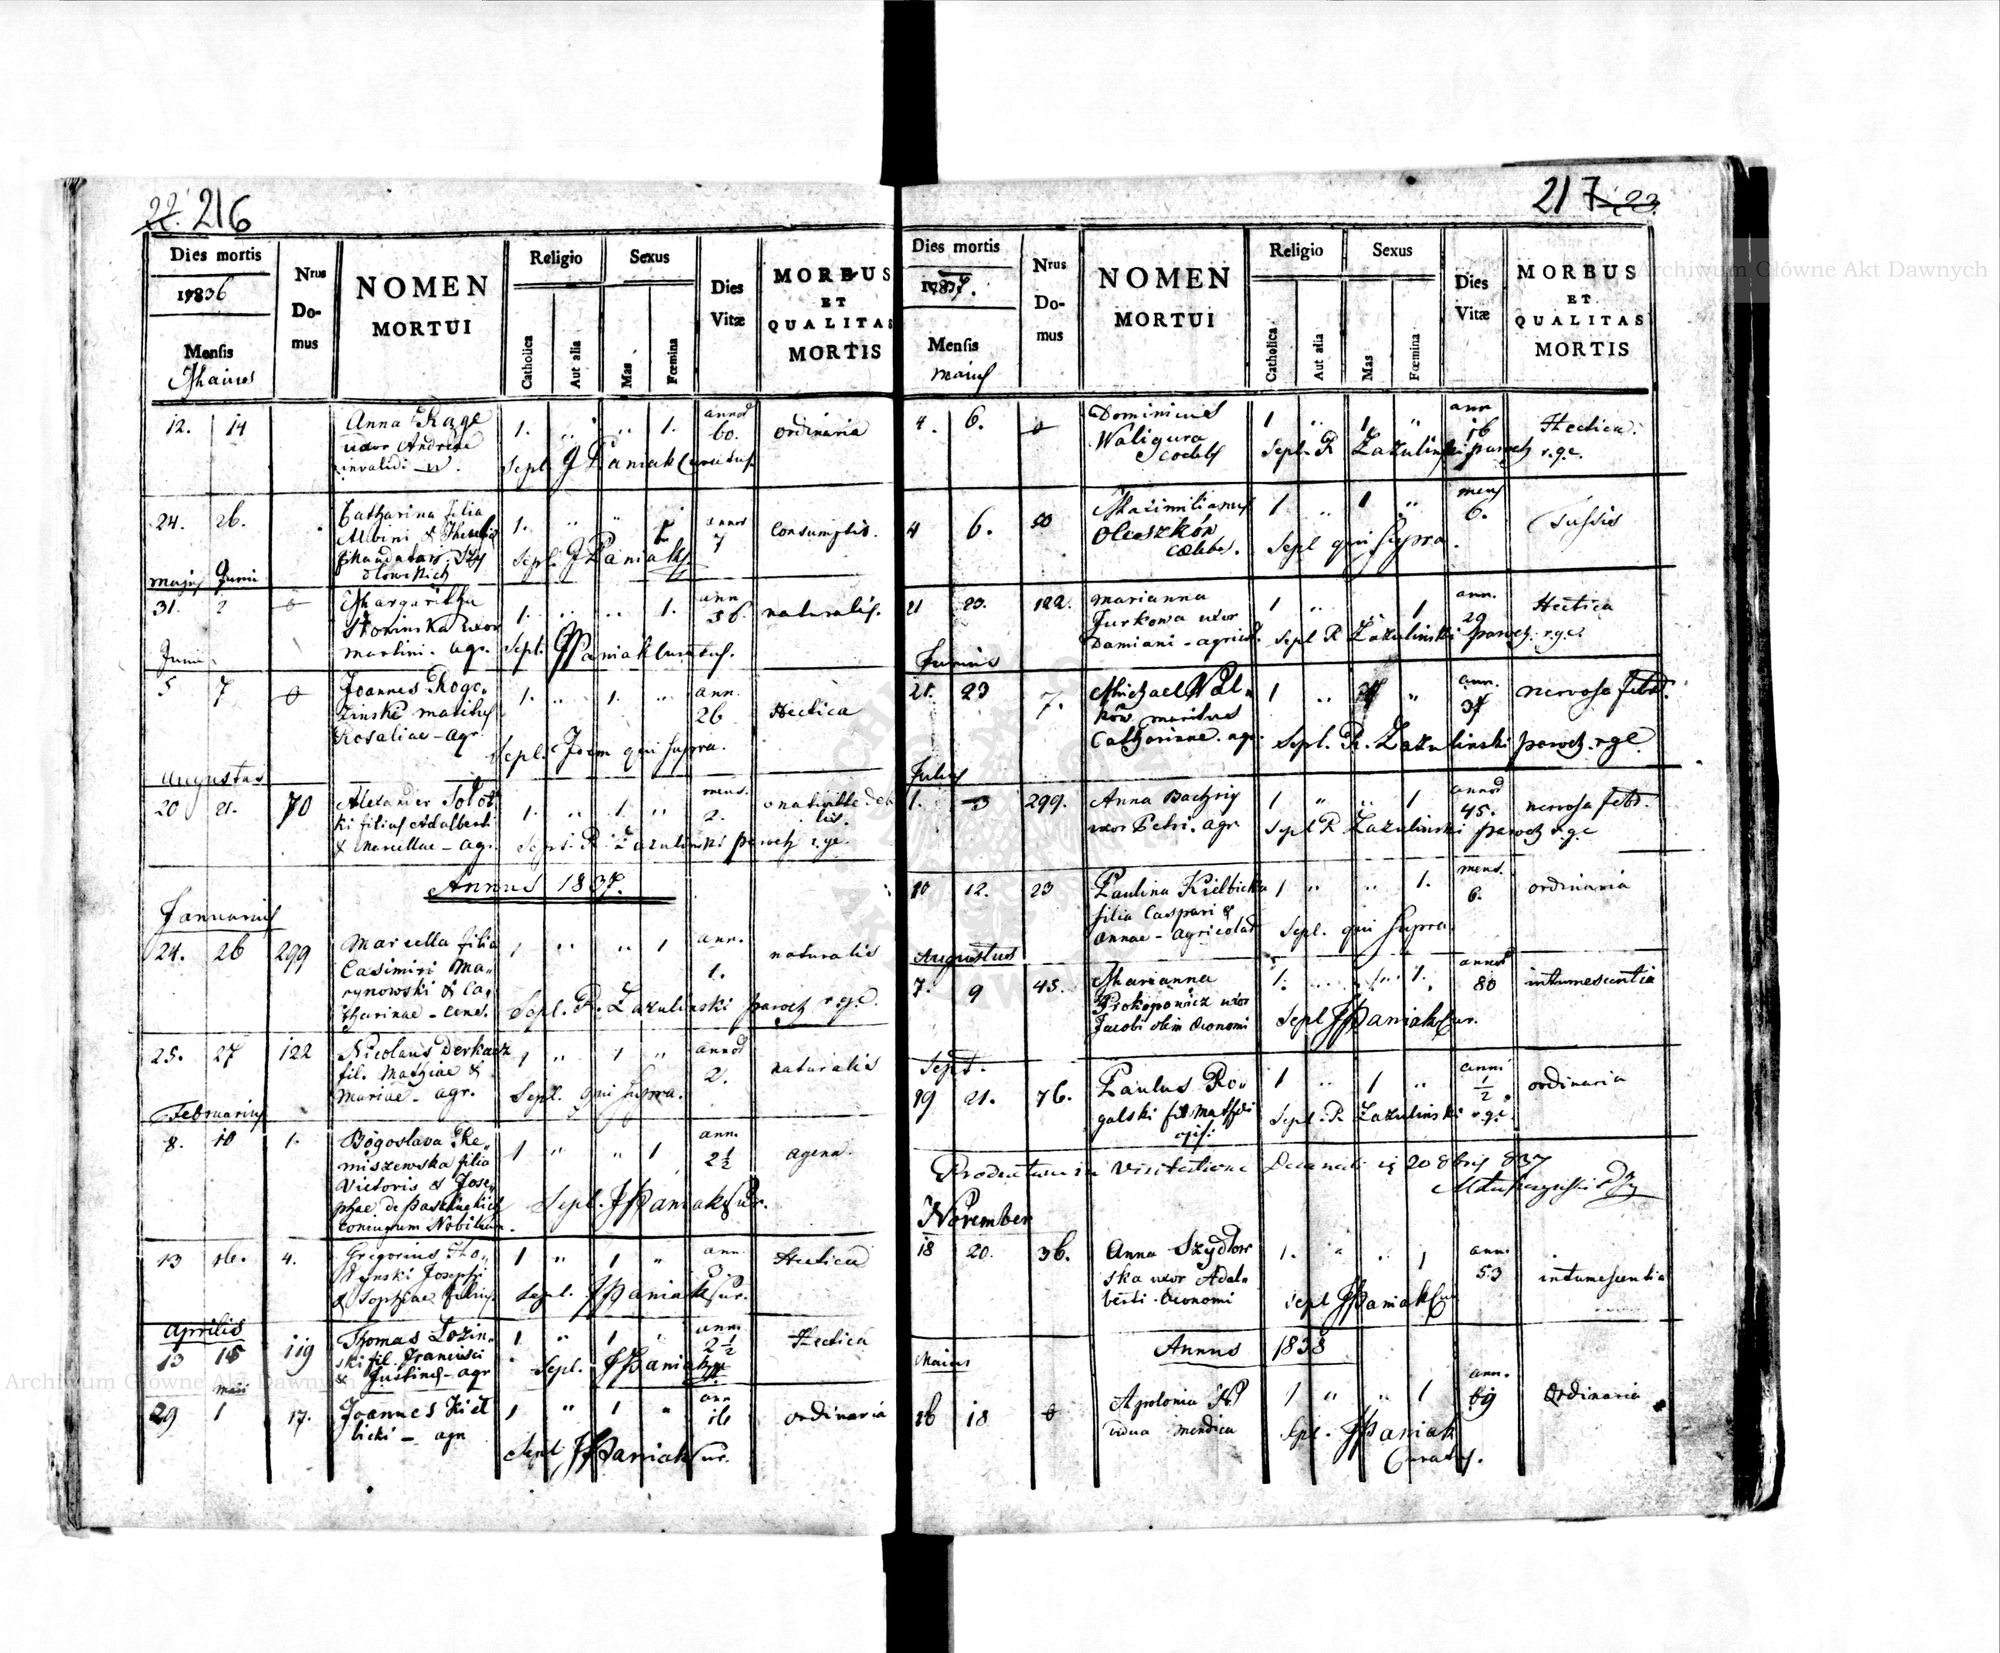 22. 216
Dies mortis
1836
Mensis
Maius
Nrus
Do-
mus
NOMEN
MORTUI
Religio
Catholica
Aut alia
Sexus
Mas
Fœmina
Dies
Vitæ
MORBUS
ET
QUALITAS
MORTIS
12. 14 Anna 1. " " 1. annor 60. ordinaria
uxor Andreae
invalidi
Sepl. J Paniak Curatus
24. 26. Catharina filia 1. " " 1. annor 7 Consumptio.
Albini &
Mandatar. Szy
dlowskich
Sepl. J Paniak
majus Junii
31. 2 Margaritha 1. " " 1. ann 56. naturalis.
Słowinska uxor
Martini - agr.
Sepl. J Paniak Curatus.
Junii
5 7 Joannes Rogo- 1. " 1. " ann. 26 Hectica
zinski maritus
Rosaliae - agr
Sepl. Idem qui supra.
Augustus
20 21. 70 Alexander 1. " 1. " mens. 2.
ki filius Adalberti
& Marcellae - agr.
Sepl. R. Zazulinski paroch r.gc.
Annus 1837.
Januarius
24. 26 299 Marcella filia 1 " " 1 ann. 1. naturalis
Casimiri Ma-
rynowski & Ca-
tharinae -
Sepl. R. Zazulinski paroch r.g.c.
25. 27 122 Nicolaus Derkacz 1 " 1 " annor 2. naturalis
fil. Mathiae &
Mariae - agr.
Sepl. qui supra.
Februarius
8. 10 1. Bogoslava 1 " " 1 ann. 2½
miszewska filia
Victoris & Jose-
phae de
coniugum Nobilium.
Sepl. J Paniak Cur.
13 16. 4. Gregorius 1 " 1 " ann. Hectica
Josephi
& Sophiae
Sepl. J Paniak Cur.
Aprilis
13 15 119 Thomas Lozin- 1 " 1 " ann. 2½ Hectica
ski fil. Francisci
& Justinae - agr
Sepl. J Paniak
Maii
29 1 17. Joannes Kieł 1 " 1 " ann 16 ordinaria
bicki - agr
Sepl J Paniak Cur.
217 23.
Dies mortis
1837.
Mensis
Maius
Nrus
Do-
mus
NOMEN
MORTUI
Religio
Catholica
Aut alia
Sexus
Mas
Fœmina
Dies
Vitæ
MORBUS
ET
QUALITAS
MORTIS
4. 6. Dominicus 1 " 1 " ann 16 Hectica.
Waligura
coelebs
Sepl. R Zazulinski paroch r.g.c.
4 6. 50 Maximilianus 1 " 1 " mens 6. Tussis
Oleszków
caelebs.
Sepl qui supra.
21 23. 122. Marianna 1 " 1 ann. 29 Hectica
Jurkowa uxor
Damiani - agricol.
Sepl R Zazulinski paroch. r.g.c.
Junius
21. 23 7. Michael 1 " " ann. 37 nervosa febr.
ków maritus
Catharinae. agr.
Sepl. R. Zazulinski paroch r.g.c.
Julius
1. 3 299. Anna Bachry 1 " " 1 annor 45. nervosa febr.
uxor Petri. agr.
Sepl R Zazulinski paroch r.g.c
10 12. 23 Paulina Kielbicka 1 " " 1. mens. 6. ordinaria
filia Caspari &
Annae - agricolar
Sepl. qui supra
Augustus
7. 9 45. Marianna 1. " 1. annor 80 intumescentia
Prokopowicz uxor
Jacobi olim Oeconomi
Sepl J Paniak Cur.
Sept.
19 21. 76. Paulus Ro- 1 " 1 " anni ½ ordinaria
galski fil Mathei
Sepl. R Zazulinski r.g.c.
Productum in Visitatione Decanali 20 8bris 837
November
18 20. 36. Anna Szydłow 1. " " 1 ann. 53 intumescentia
ska uxor Adal-
berti Oeconomi
Sepl J Paniak Cur
Annus 1838
Maius
16 18 Apolonia N 1 " " 1 ann. 69 Ordinaria
vidua mendica
Sepl. J Paniak
Curatus.
Archiwum Główne Akt Dawnych
Archiwum Główne Akt Dawnych